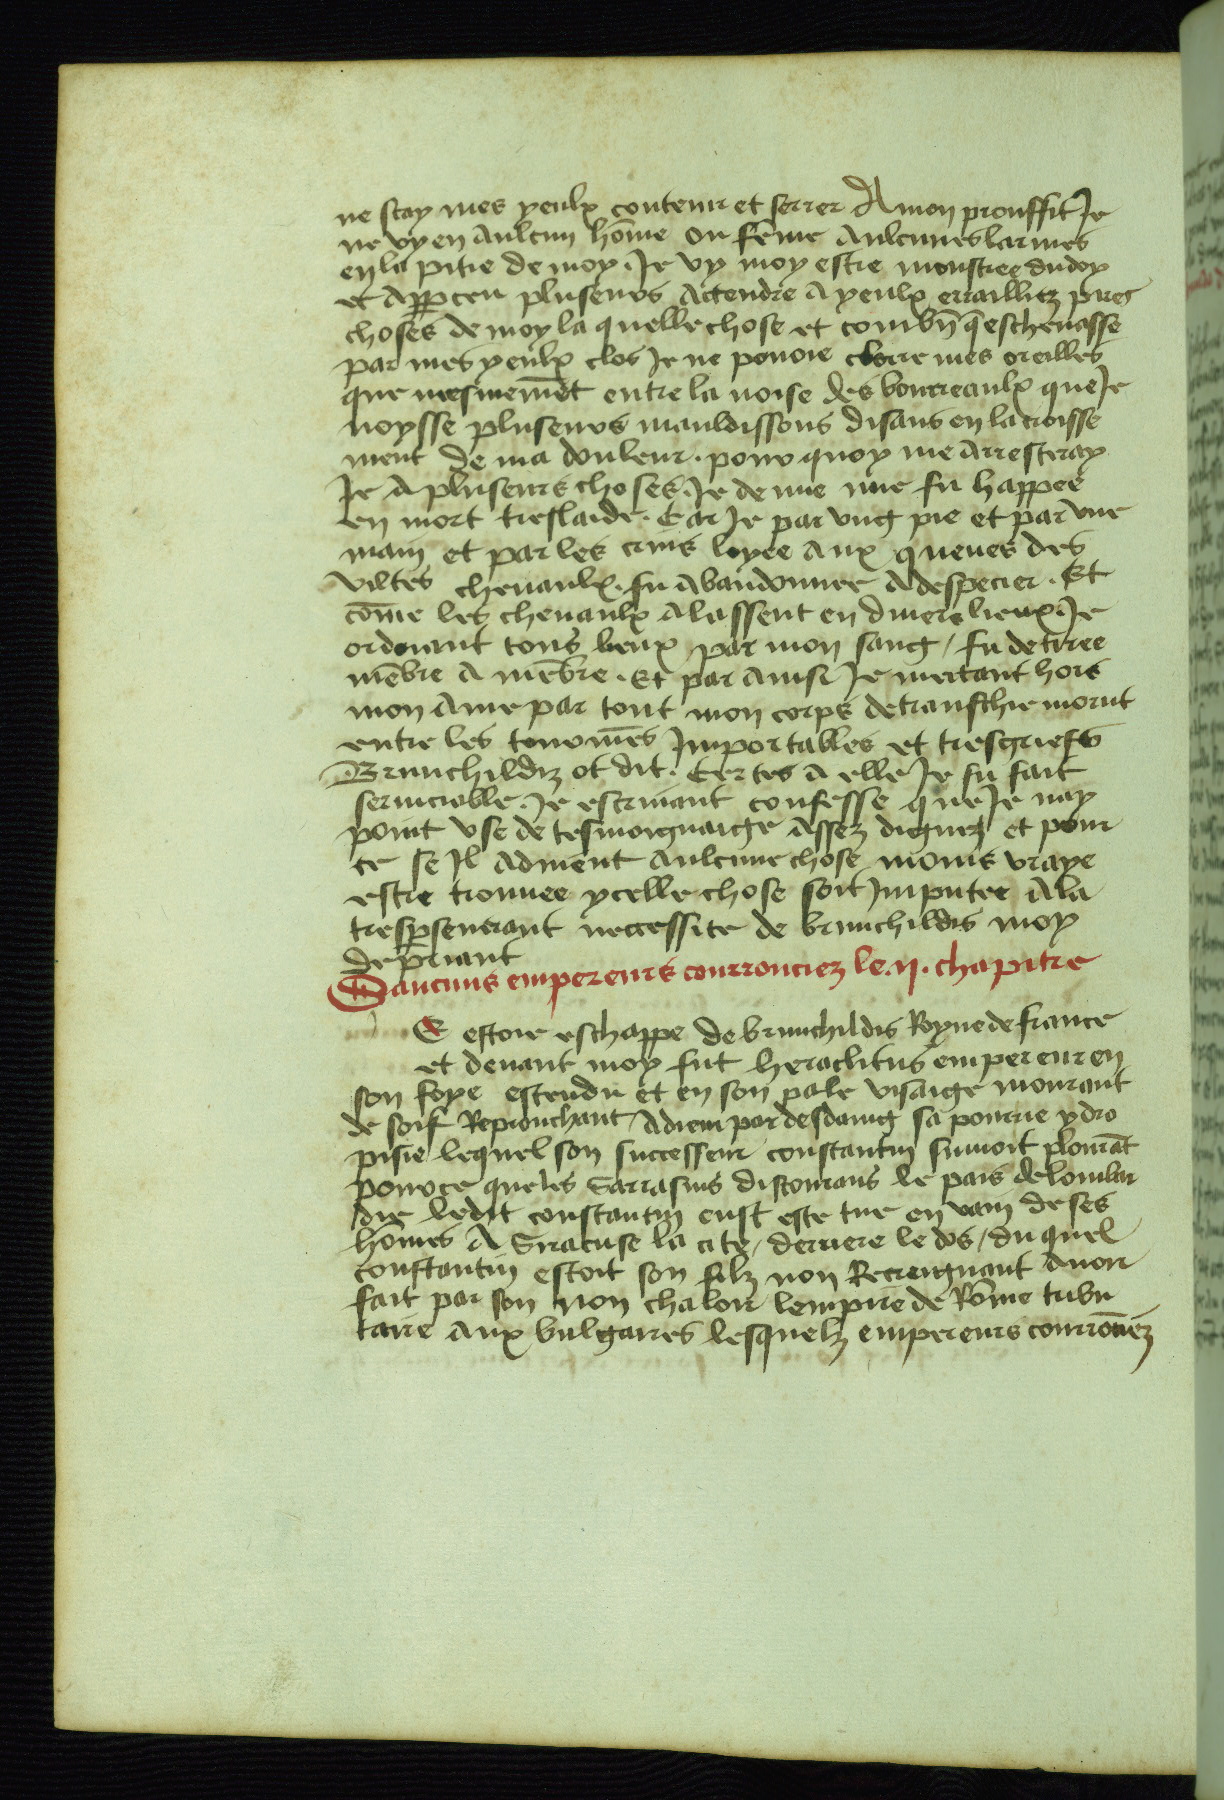 ne scay mes yeulx contenir et serrer A mon prouffit Je
ne vy en aulcun hōme ou fēme aulcunes larmes
en la pitie de moy . Je vy moy estre monstree du doy
et appceu pluseurs actendre a yeulx erraillez
choses de moy la quelle chose et combn̄ q̄ eschevasse
par mes yeulx clos Je ne povoie clorre mes oreilles
que mesmemēt entre la noise des bourreaulx que Je
noysse pluseurs mauldissons disans en lacroisse
ment de ma douleur . pour quoy me arresteray
Je a pluseurs choses . Je de mie nue fu happee
en mort treslaide . Car Je par ung pie et par une
main et par les crins loyee aux queues des
vistes chevaulx . fu abandonnee a despecier . Et
cōme les chevaulx alassent en divers lieux . Je
ordoiant tous lieux par mon sang / fu detiree
mēbre a mēbre . Et par ainsi Je mectant hors
mon ame par tout mon corps detranschie morut
entre les tourmēs Importables et tresgriefs
Brunchildiz ot dit . Certes a elle Je fu fait
serviciable . Je escrivant confesse que Je nay
point use de tesmoignaige assez digne et pour
ce se Il advient aulcune chose moins vraye
estre trouvee ycelle chose soit Imputee a la
trespseverant necessite de brunchildis moy
depriant
Daucuns empereurs courrouciez le .ii. chapitre
E estoie eschappe de brunchildis Royne de france
et devant moy fut heraclitus empereur en
son foye estendu et en son pale visaige mourant
de soif Reprouchant adieu par desdaing sa pourrie ydro
pisie lequel son successeur constantin suivoit plourāt
pource que les Sarrasins discourans le pais de lombar
die ledit constantin eust este tue en vain de ses
hōmes A Siracuse la cite / derriere le dos / du quel
constantin estoit son filz non Recreignant avoir
fait par son non chaloir lempire de Rōme tribu
taire aux bulgaires lesquelz empereurs courroucēz